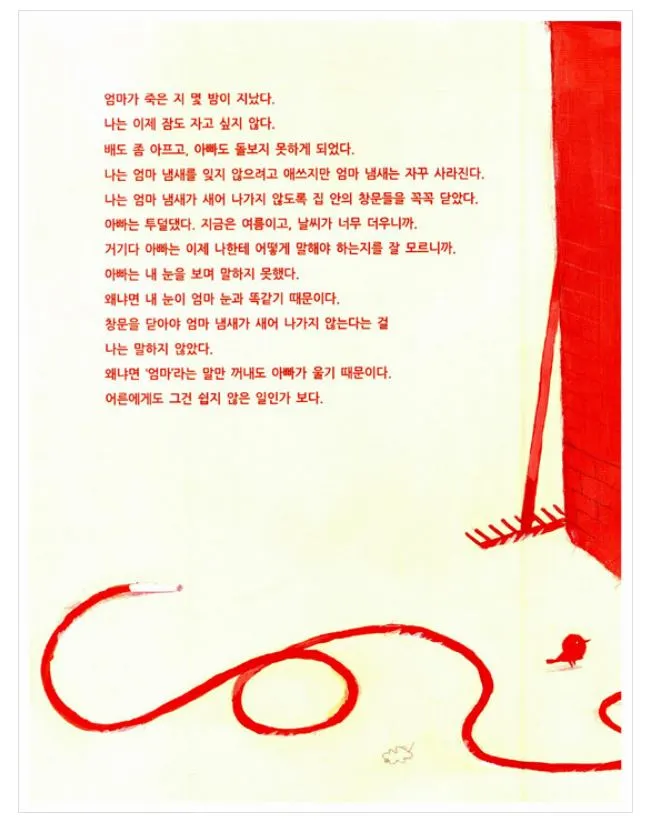 엄마가 죽은 지 몇 밤이 지났다.
나는 이제 잠도 자고 싶지 않다.
배도 좀 아프고, 아빠도 돌보지 못하게 되었다.
나는 엄마 냄새를 잊지 않으려고 애쓰지만 엄마 냄새는 자꾸 사라진다.
나는 엄마 냄새가 새어 나가지 않도록 집 안의 창문들을 꼭꼭 닫았다.
아빠는 투덜댔다. 지금은 여름이고, 날씨가 너무 더우니까.
거기다 아빠는 이제 나한테 어떻게 말해야 하는지를 잘 모르니까.
아빠는 내 눈을 보며 말하지 못했다.
왜냐면 내 눈이 엄마 눈과 똑같기 때문이다.
창문을 닫아야 엄마 냄새가 새어 나가지 않는다는 걸
나는 말하지 않았다.
왜냐면 '엄마'라는 말만 꺼내도 아빠가 울기 때문이다.
어른에게도 그건 쉽지 않은 일인가 보다.